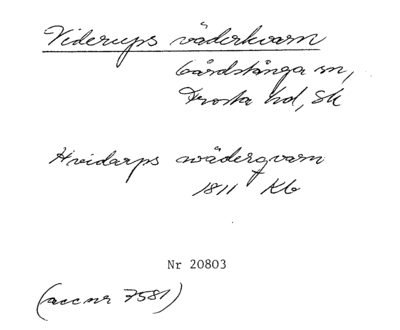 Viderups väderkvarn
Gårdstånga sn,
Frosta hd, Sk
Hvidarps wäderqvarn
1811 Kb
Nr 20803
(acc nr 7581)